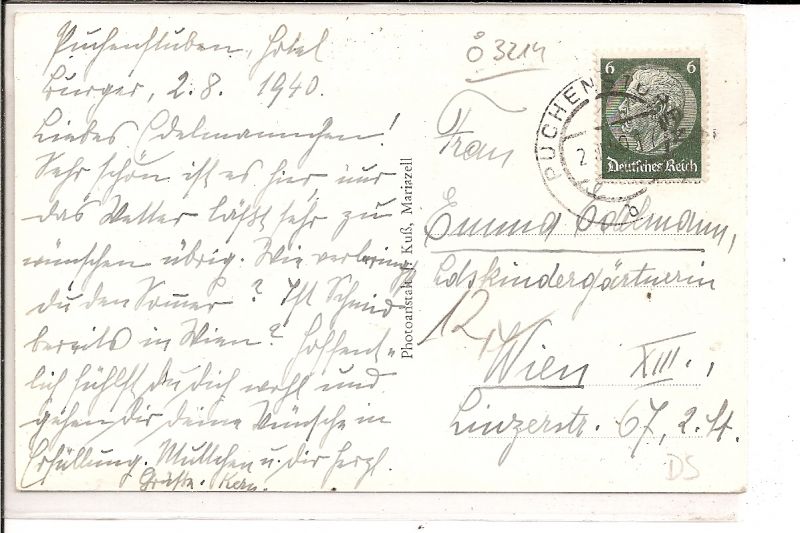 Puchenstuben, Hotel
Burger, 2. 8. 1940.
Liebes Edelmannchen!
Sehr schön ist es hier, nur
das Wetter läßt sehr zu
wünschen übrig. Wie verbringst
du den Sommer? Ist Schmid
bereits in Wien? Hoffent-
lich fühlst du dich wohl und
gehen dir deine Wünsche in
Erfüllung. Muttchen u. dir herzl.
Grüße. Kern.
Photoanstalt J. Kuß, Mariazell
Ö 3214
6 6
Deutsches Reich
PUCHENSTUBEN
b
Frau
Emma Edelmann,
Ldskindergärtnerin
12,
Wien XIII.,
Linzerstr. 67, 2. St.
DS